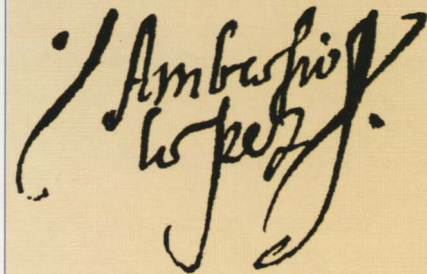 Ambrosio
lopez